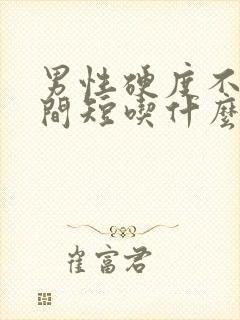 男性硬度不
間短喫什麼
崔富君